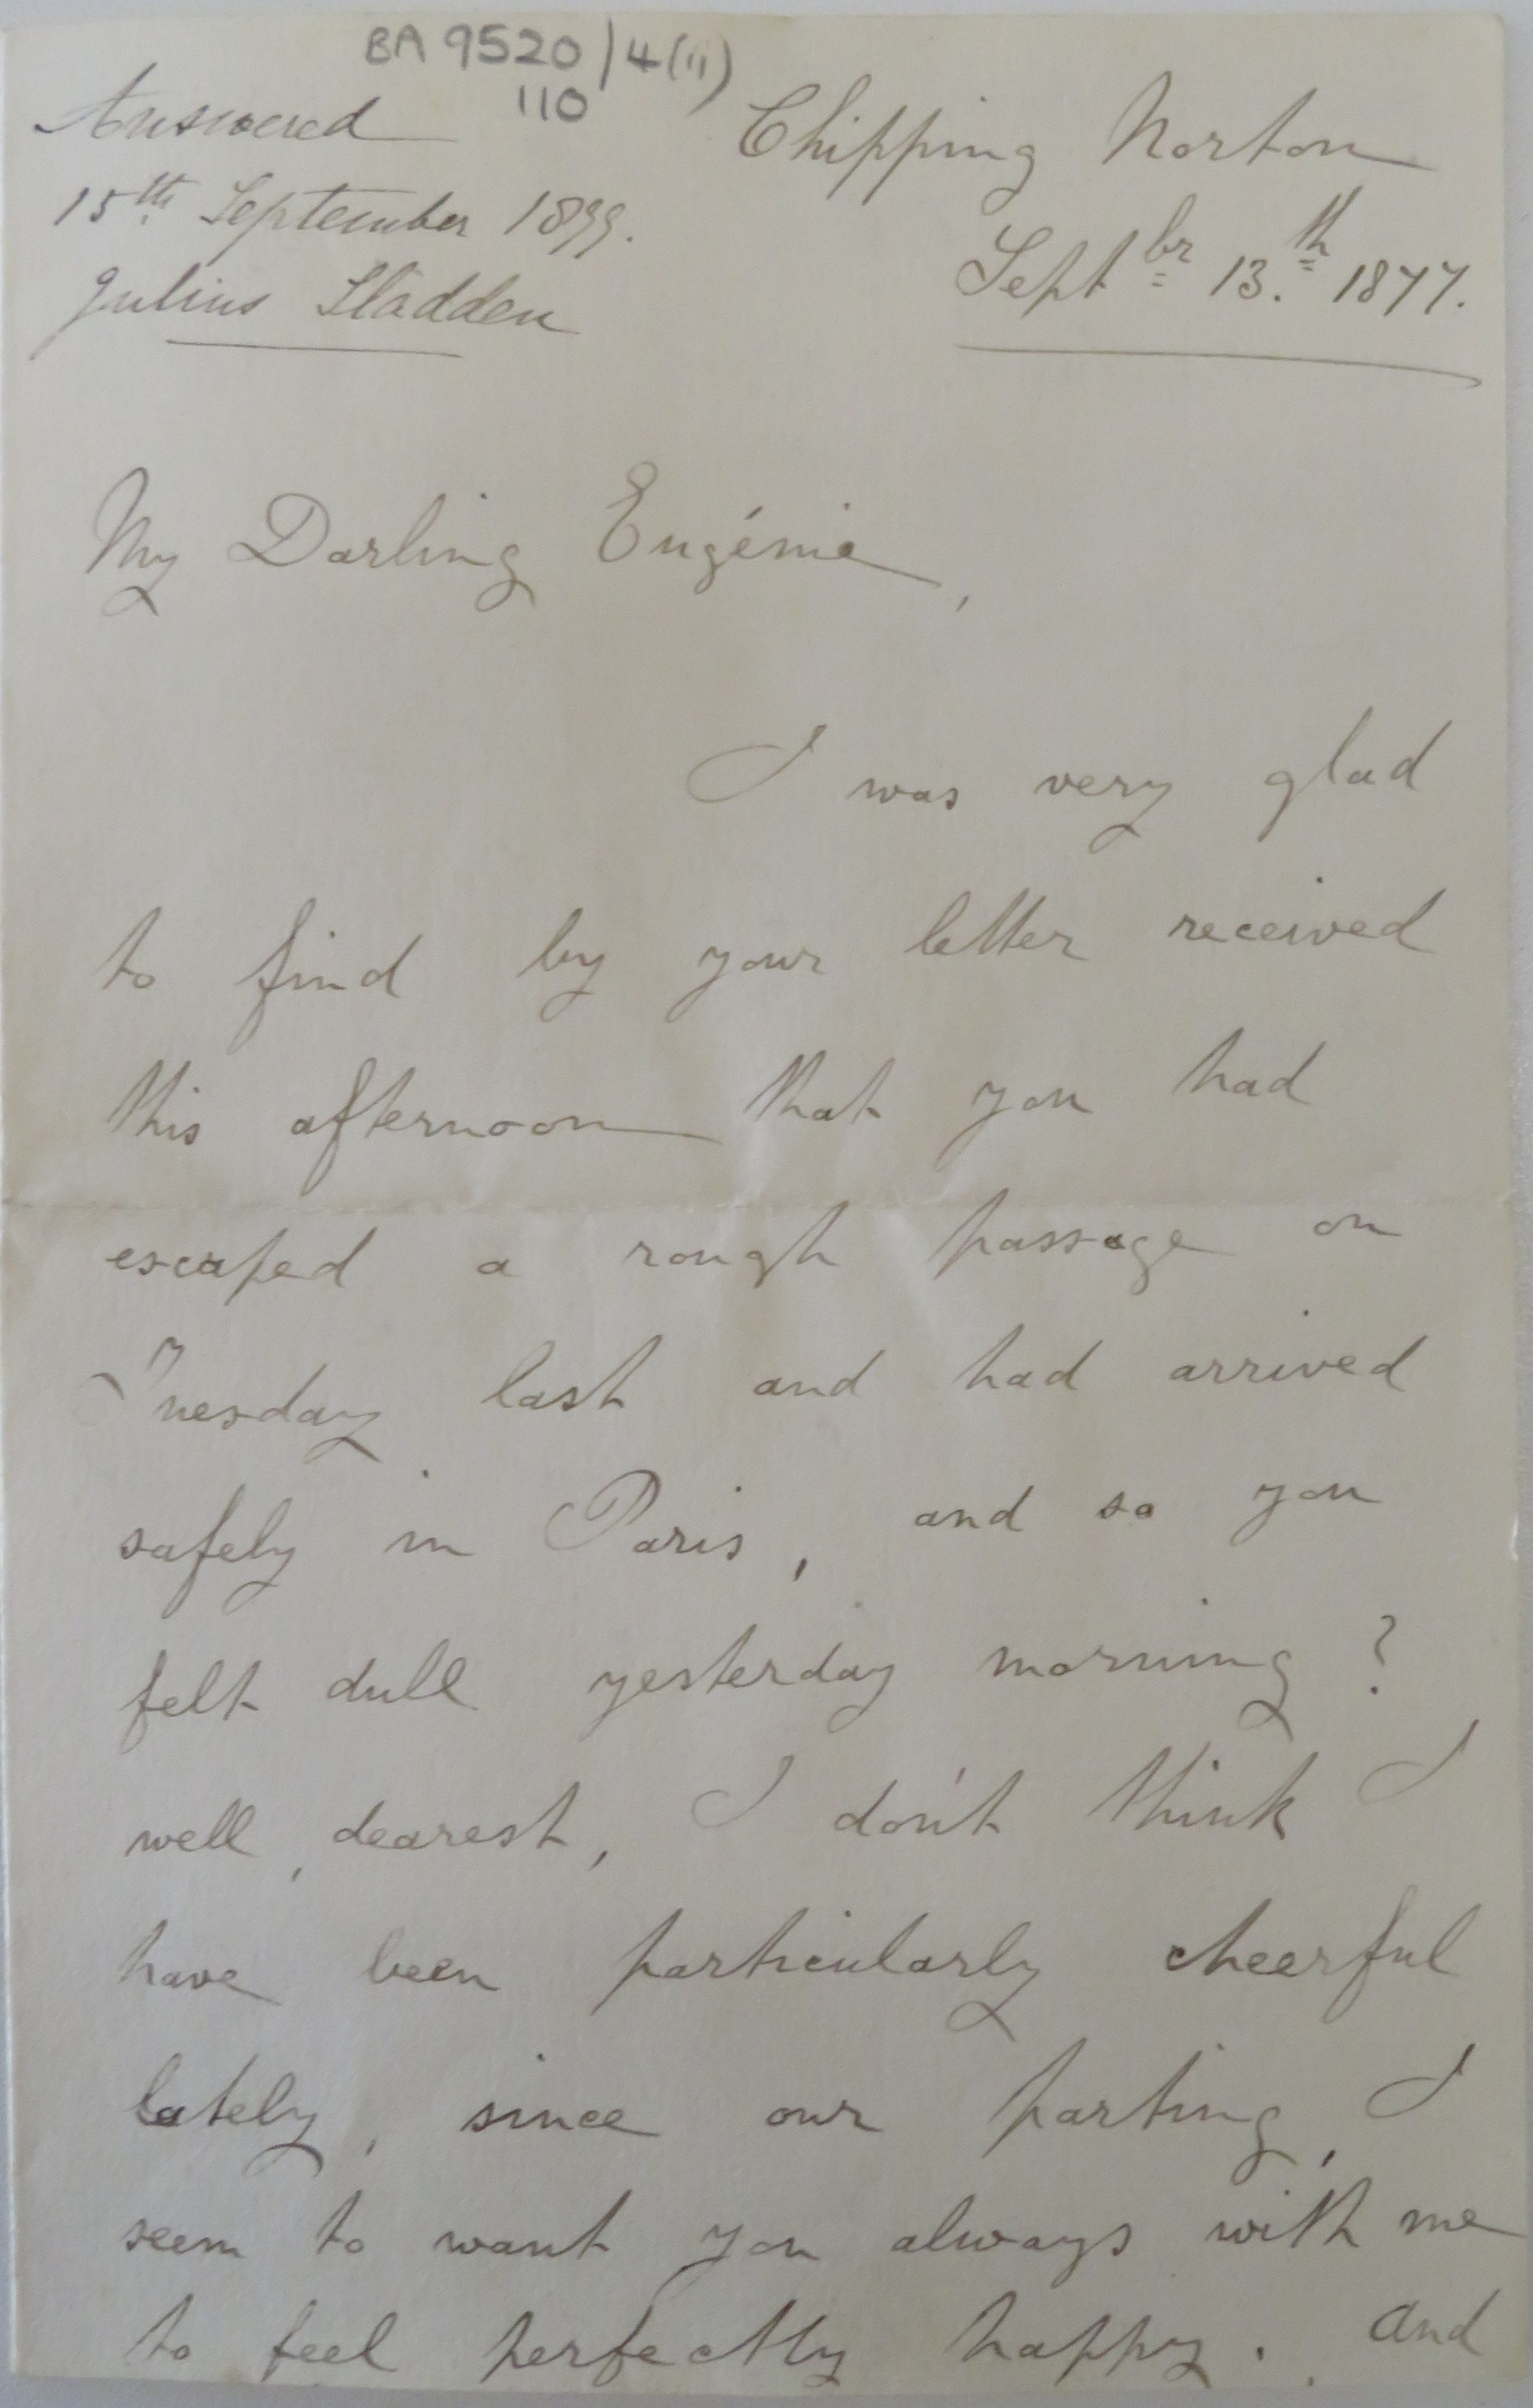 BA 9520/4(ii)
110
Answered
15th September 1877.
Julius Sladden
Chipping Norton
Septbr 13.th 1877.
My Darling Eugénie,
I was very glad
to find by your letter received
this afternoon that you had
escaped a rough passage on
Tuesday last and had arrived
safely in Paris, and so you
felt dull yesterday morning?
well, dearest, I don't think I
have been particularly cheerful
lately, since our parting, I
seem to want you always with me
to feel perfectly happy. And